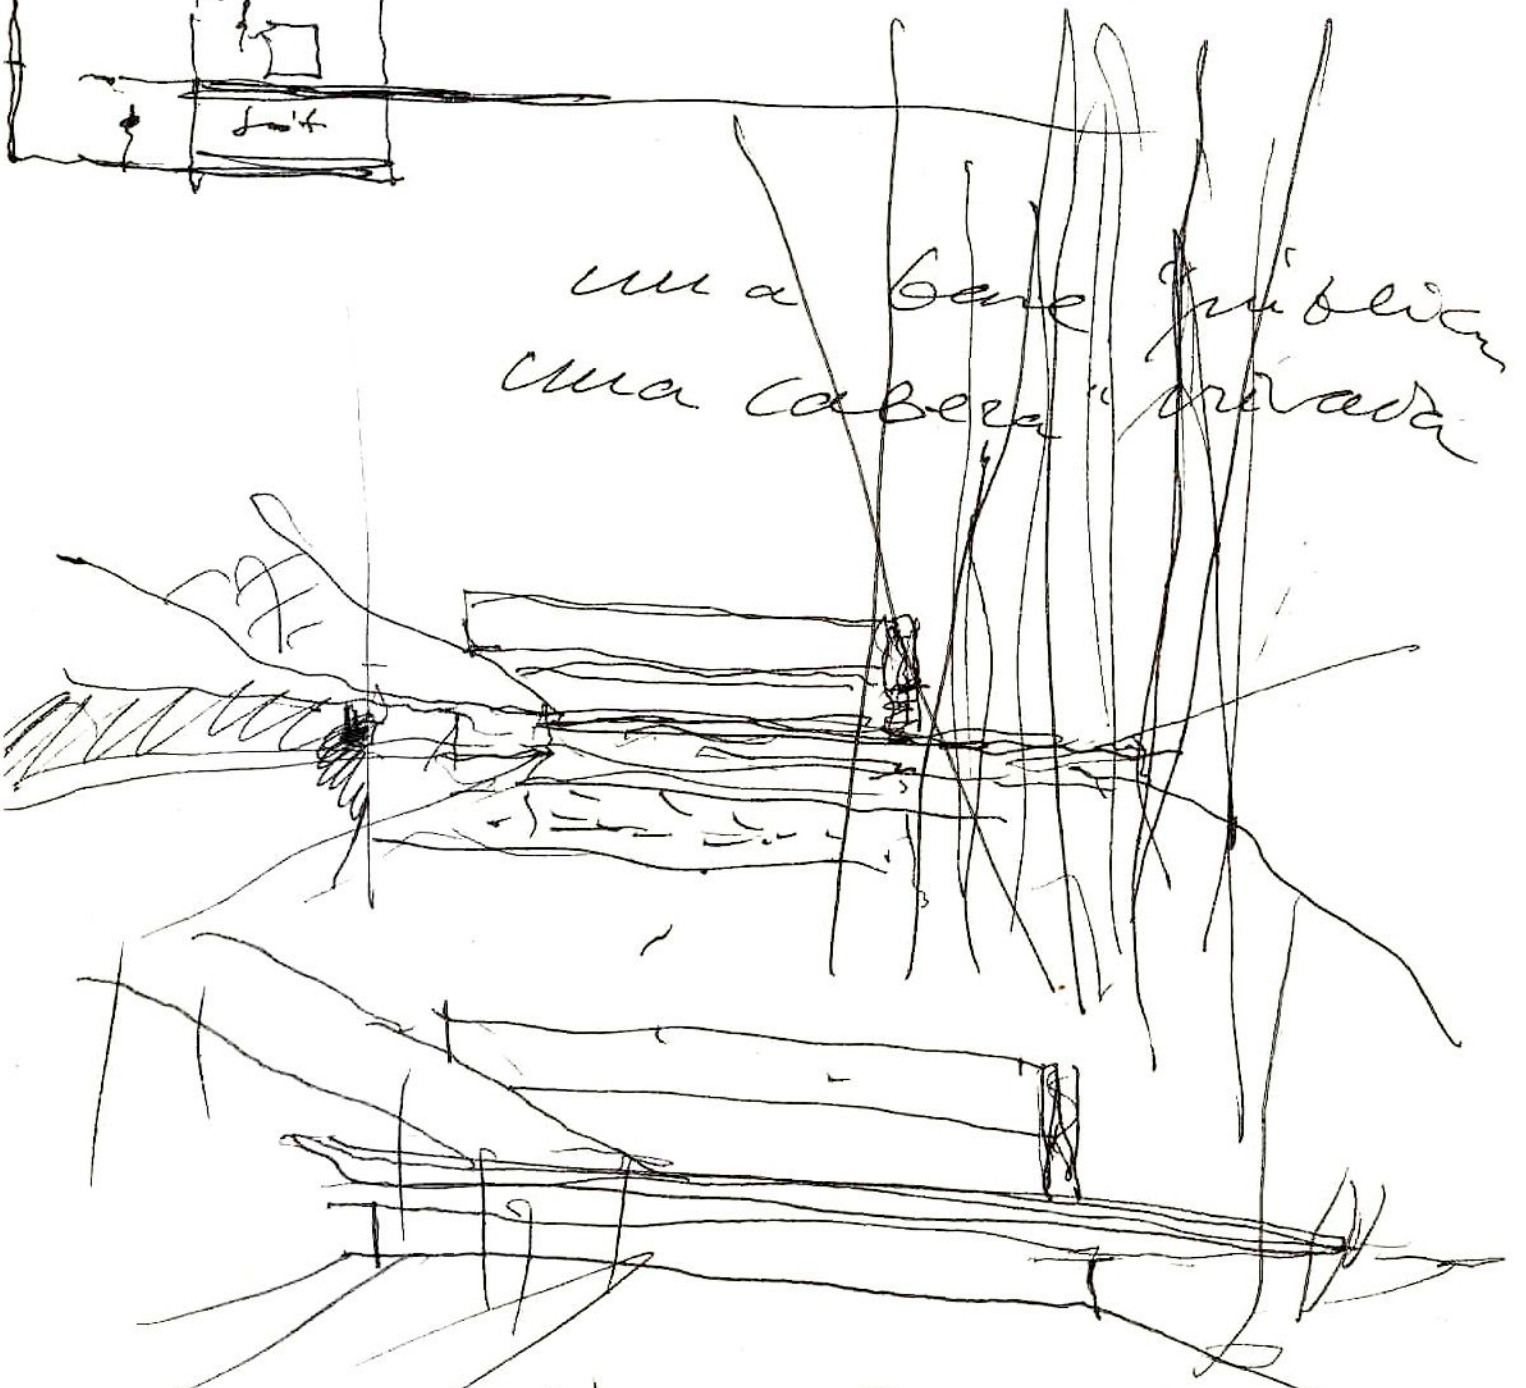 una base pública
una cabeza privada